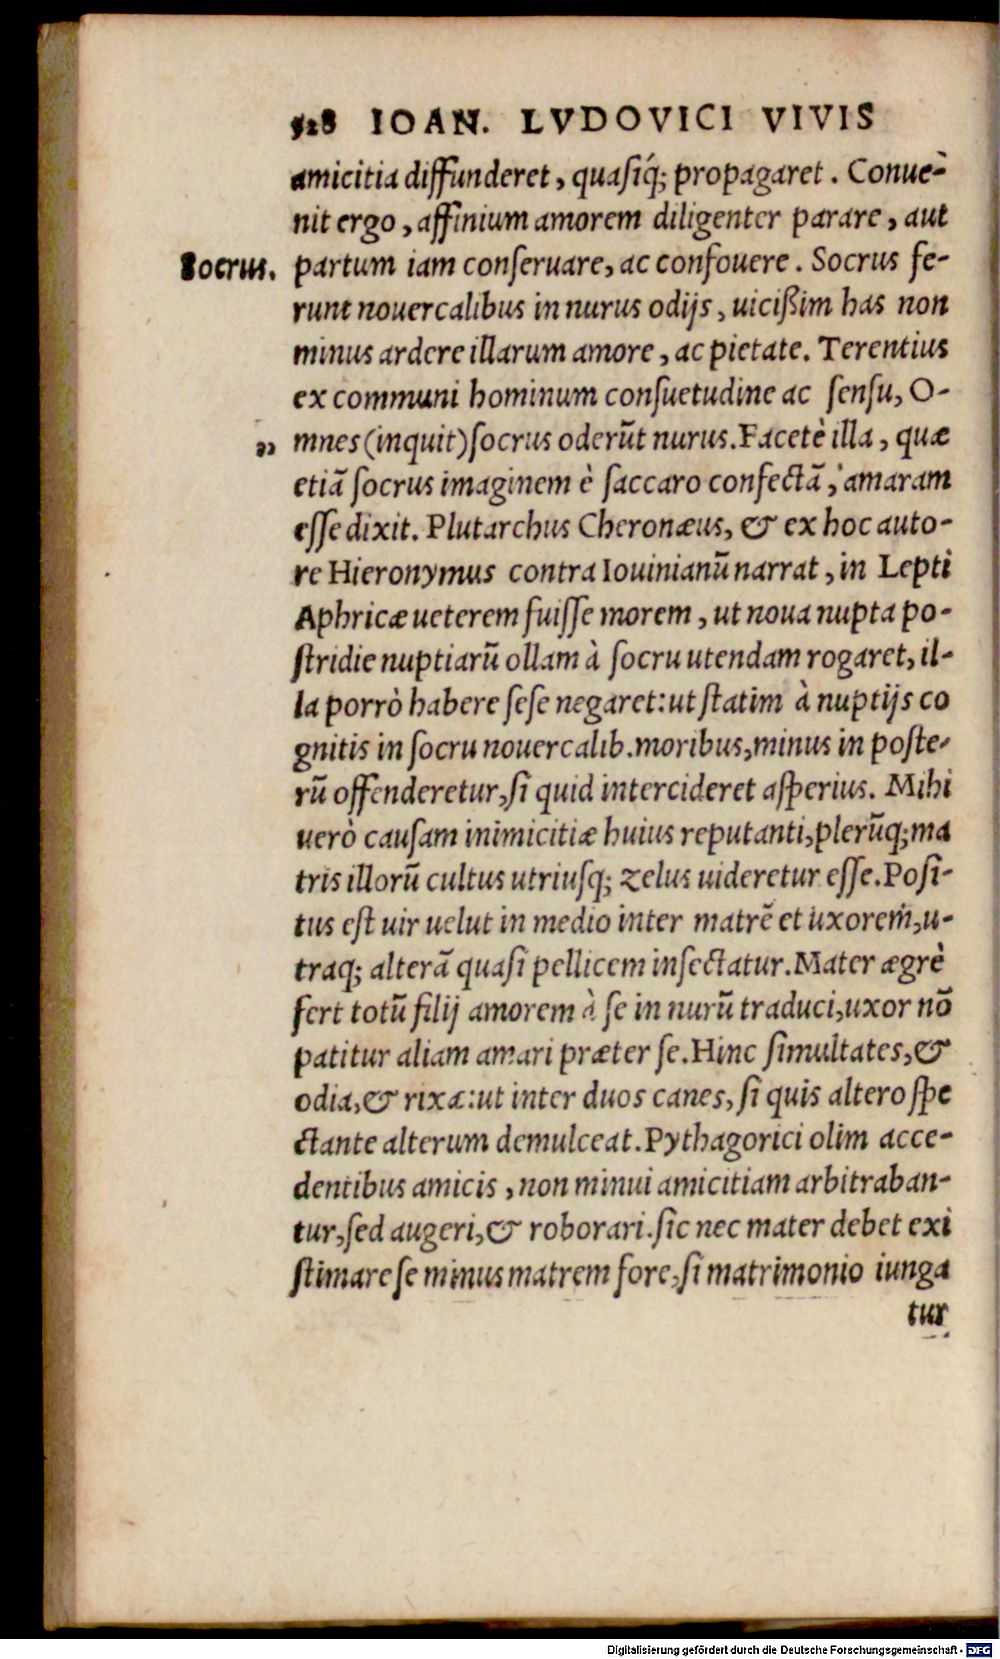 528 IOAN. LVDOVICI VIVIS
amicitia diffunderet, quasiq́; propagaret. Conue-
nit ergo, affinium amorem diligenter parare, aut
Socrus.
partum iam conseruare, ac confouere. Socrus fe-
runt nouercalibus in nurus odijs, uicißim has non
minus ardere illarum amore, ac pietate. Terentius
ex communi hominum consuetudine ac sensu, O-
„ mnes (inquit) socrus oderūt nurus. Facetè illa, quæ
etiā socrus imaginem è saccaro confectā, amaram
esse dixit. Plutarchus Cheronæus, & ex hoc auto-
re Hieronymus contra Iouinianū narrat, in Lepti
Aphricæ ueterem fuisse morem, ut noua nupta po-
stridie nuptiarū ollam à socru utendam rogaret, il-
la porrò habere sese negaret: ut statim à nuptijs co
gnitis in socru nouercalib. moribus, minus in poste-
rū offenderetur, si quid intercideret asperius. Mihi
uerò causam inimicitiæ huius reputanti, plerūq; ma
tris illorū cultus utriusq; zelus uideretur esse. Posi-
tus est uir uelut in medio inter matrē et uxorem, u-
traq; alterā quasi pellicem insectatur. Mater ægrè
fert totū filij amorem à se in nurū traduci, uxor nō
patitur aliam amari præter se. Hinc simultates, &
odia, & rixæ: ut inter duos canes, si quis altero spe
ctante alterum demulceat. Pythagorici olim acce-
dentibus amicis, non minui amicitiam arbitraban-
tur, sed augeri, & roborari. sic nec mater debet exi
stimare se minus matrem fore, si matrimonio iunga
tur
Digitalisierung gefördert durch die Deutsche Forschungsgemeinschaft - DFG